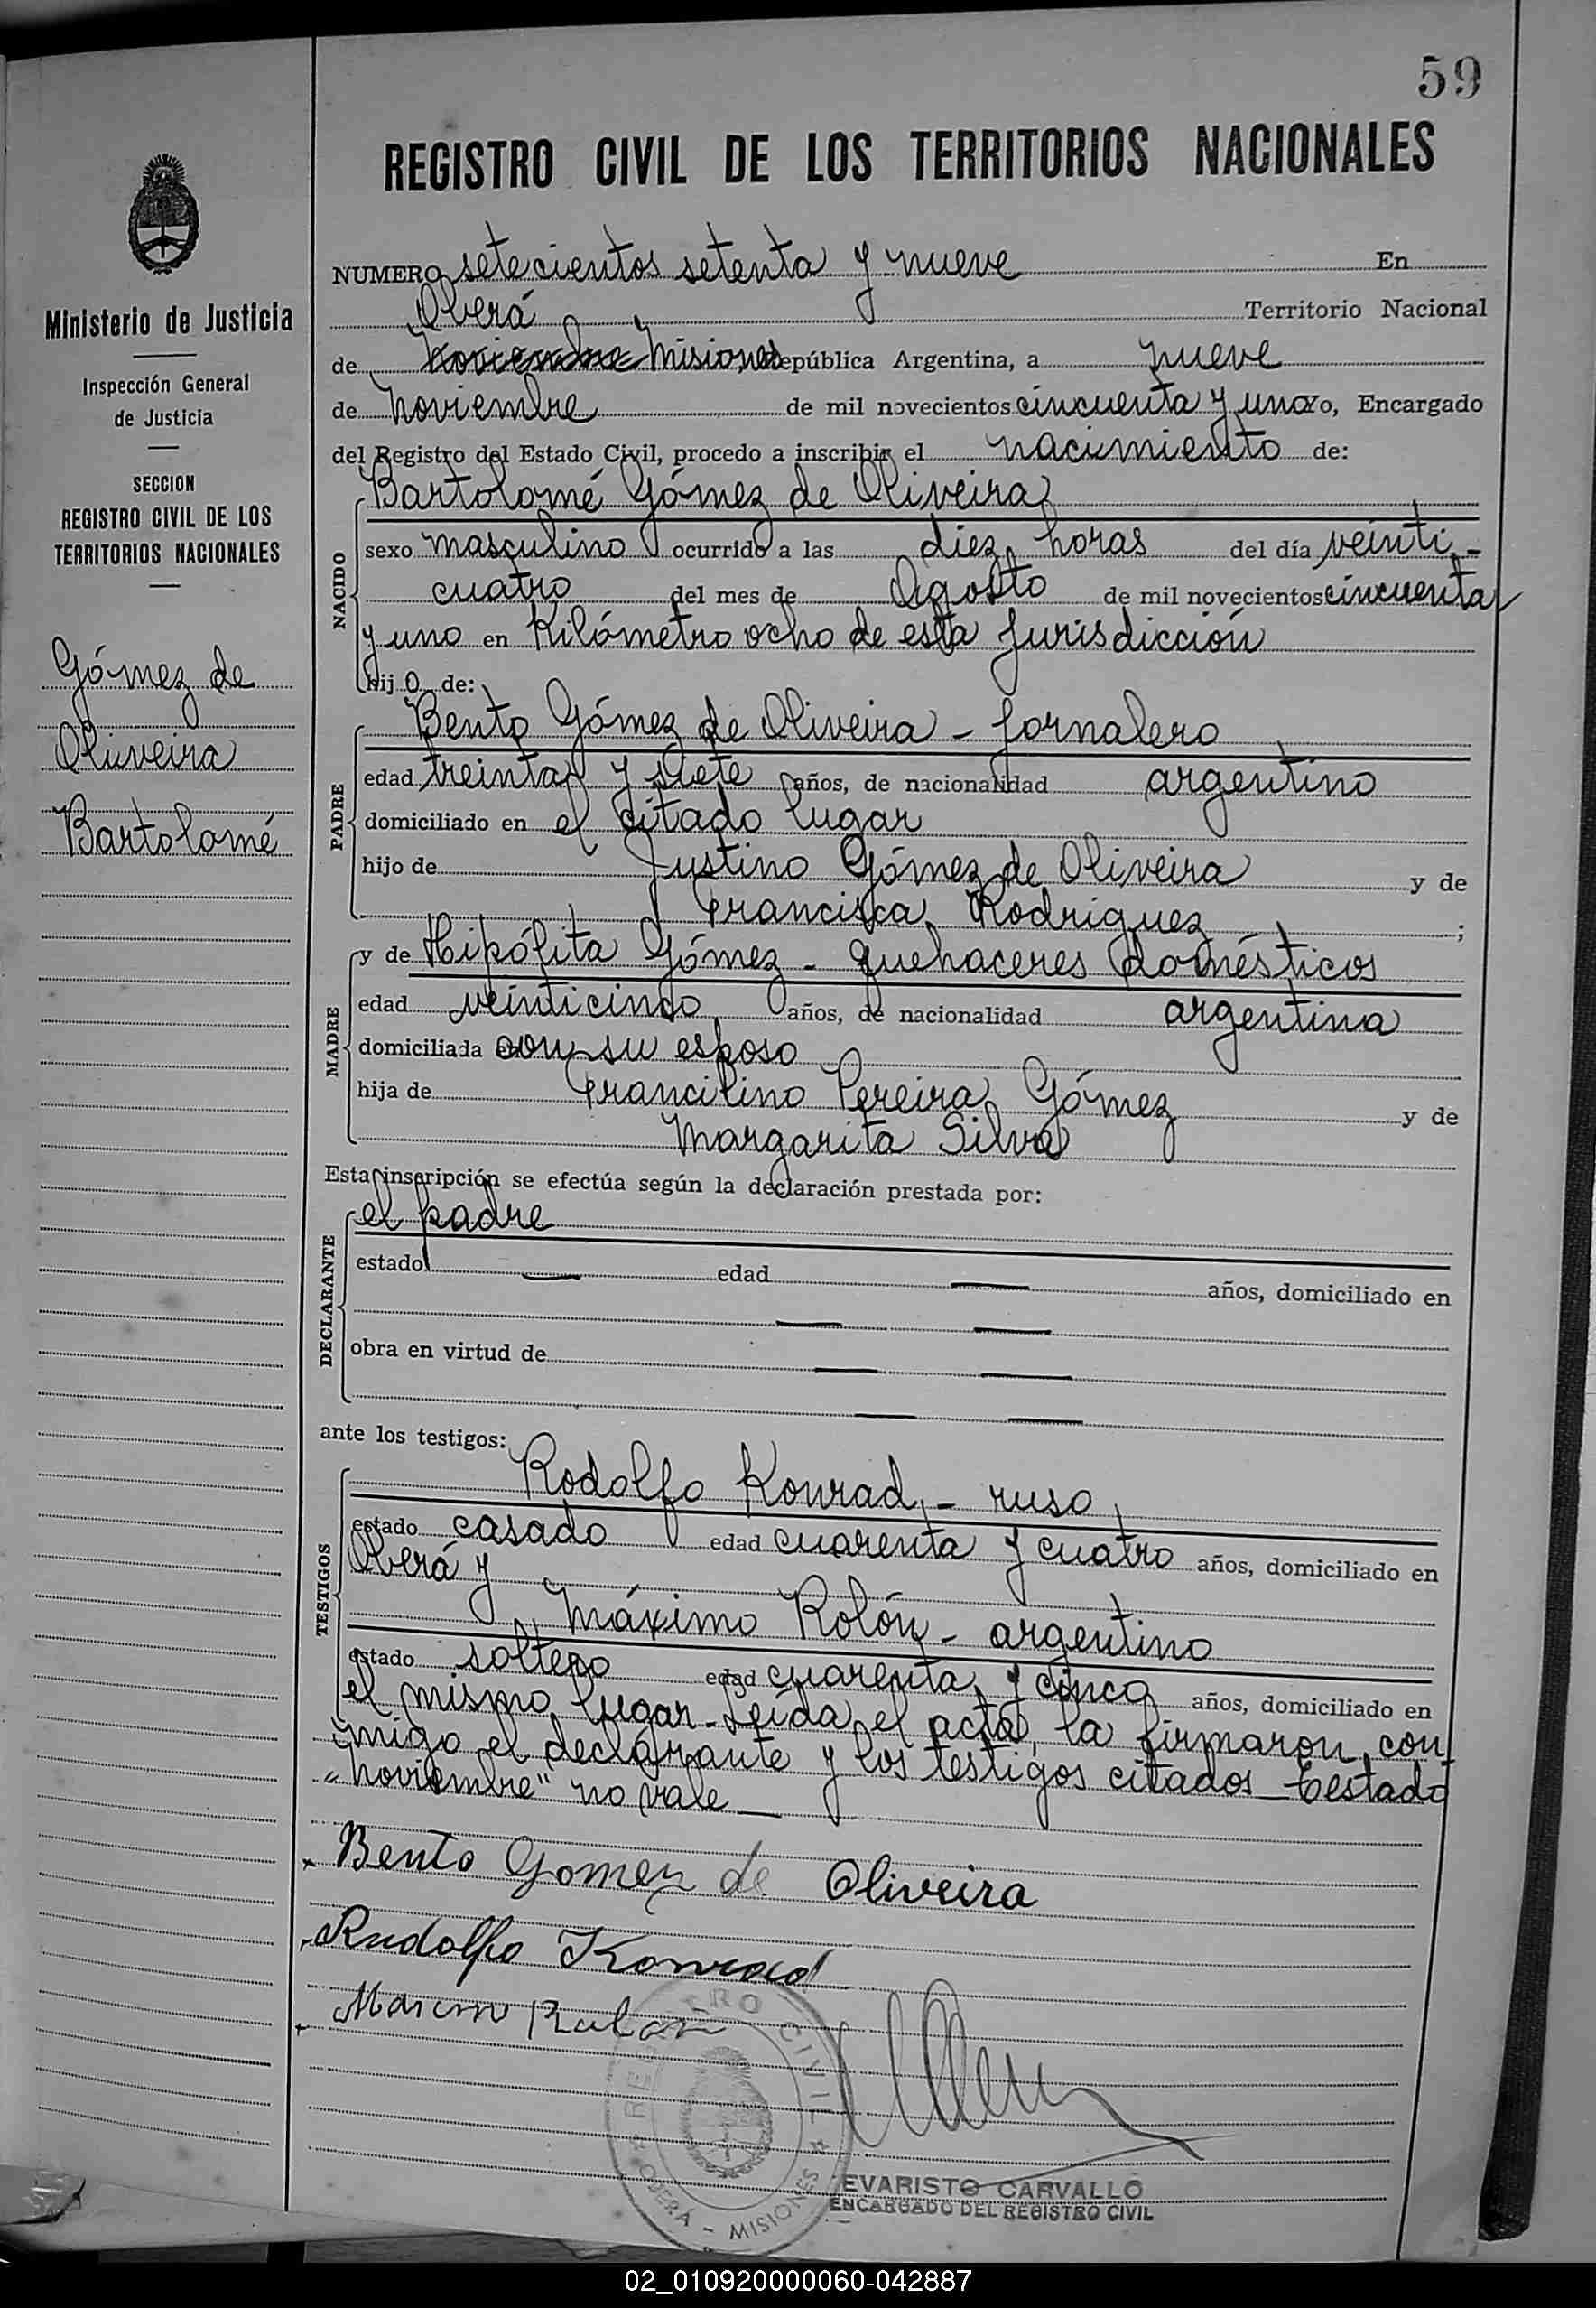 59
REGISTRO CIVIL DE LOS TERRITORIOS NACIONALES
Ministerio de Justicia
Inspección General
de Justicia
SECCION
REGISTRO CIVIL DE LOS
TERRITORIOS NACIONALES
Gómez de
Oliveira
Bartolomé
NUMERO setecientos setenta y nueve En
Oberá Territorio Nacional
de Noviembre Misiones República Argentina, a nueve
de Noviembre de mil novecientos cincuenta y uno yo, Encargado
del Registro del Estado Civil, procedo a inscribir el nacimiento de:
NACIDO
Bartolomé Gómez de Oliveira
sexo masculino ocurrido a las diez horas del día veinti-
cuatro del mes de Agosto de mil novecientos cincuenta
y uno en Kilómetro ocho de esta Jurisdicción
hijo de:
PADRE
Bento Gómez de Oliveira - Jornalero
edad treinta y siete años, de nacionalidad argentino
domiciliado en el citado lugar
hijo de Justino Gómez de Oliveira y de
Francisca Rodriguez ;
MADRE
y de Hipólita Gómez - quehaceres domésticos
edad veinticinco años, de nacionalidad argentina
domiciliada con su esposo
hija de Francilino Pereira Gómez y de
Margarita Silva
Esta inscripción se efectúa según la declaración prestada por:
DECLARANTE
el padre
estado — edad — años, domiciliado en
— —
obra en virtud de — —
— —
ante los testigos:
TESTIGOS
Rodolfo Konrad - ruso
estado casado edad cuarenta y cuatro años, domiciliado en
Oberá y
Máximo Rolón - argentino
estado soltero edad cuarenta y cinco años, domiciliado en
el mismo lugar - Leída el acta, la firmaron con
migo el declarante y los testigos citados - Testado
"noviembre" no vale —
Bento Gomez de Oliveira
Rudolfo Konrad
REGISTRO CIVIL
OBERÁ - MISIONES
EVARISTO CARVALLO
ENCARGADO DEL REGISTRO CIVIL
02_010920000060-042887